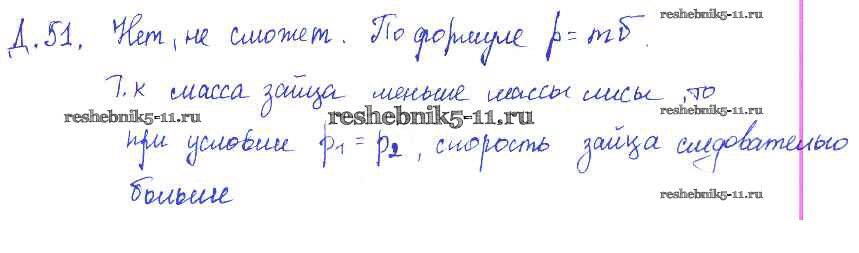 reshebnik5-11.ru
Д.51. Нет, не сможет. По формуле p = mυ.
Т.к масса зайца меньше массы лисы, то
reshebnik5-11.ru reshebnik5-11.ru reshebnik5-11.ru
при условии p₁ = p₂, скорость зайца следовательно
больше
reshebnik5-11.ru